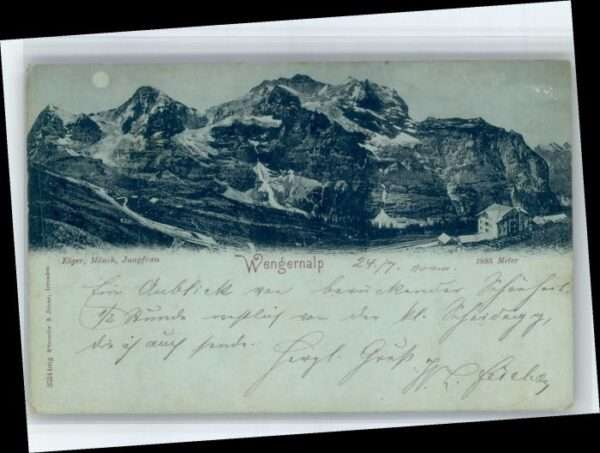 Eiger, Mönch, Jungfrau
Wengernalp
24./7.
1885 Meter
Ein Anblick von berückender Schönheit.
1/2 Stunde westlich von der kl. Scheidegg,
die ich auch sende. Herzl. Gruß
W. L.